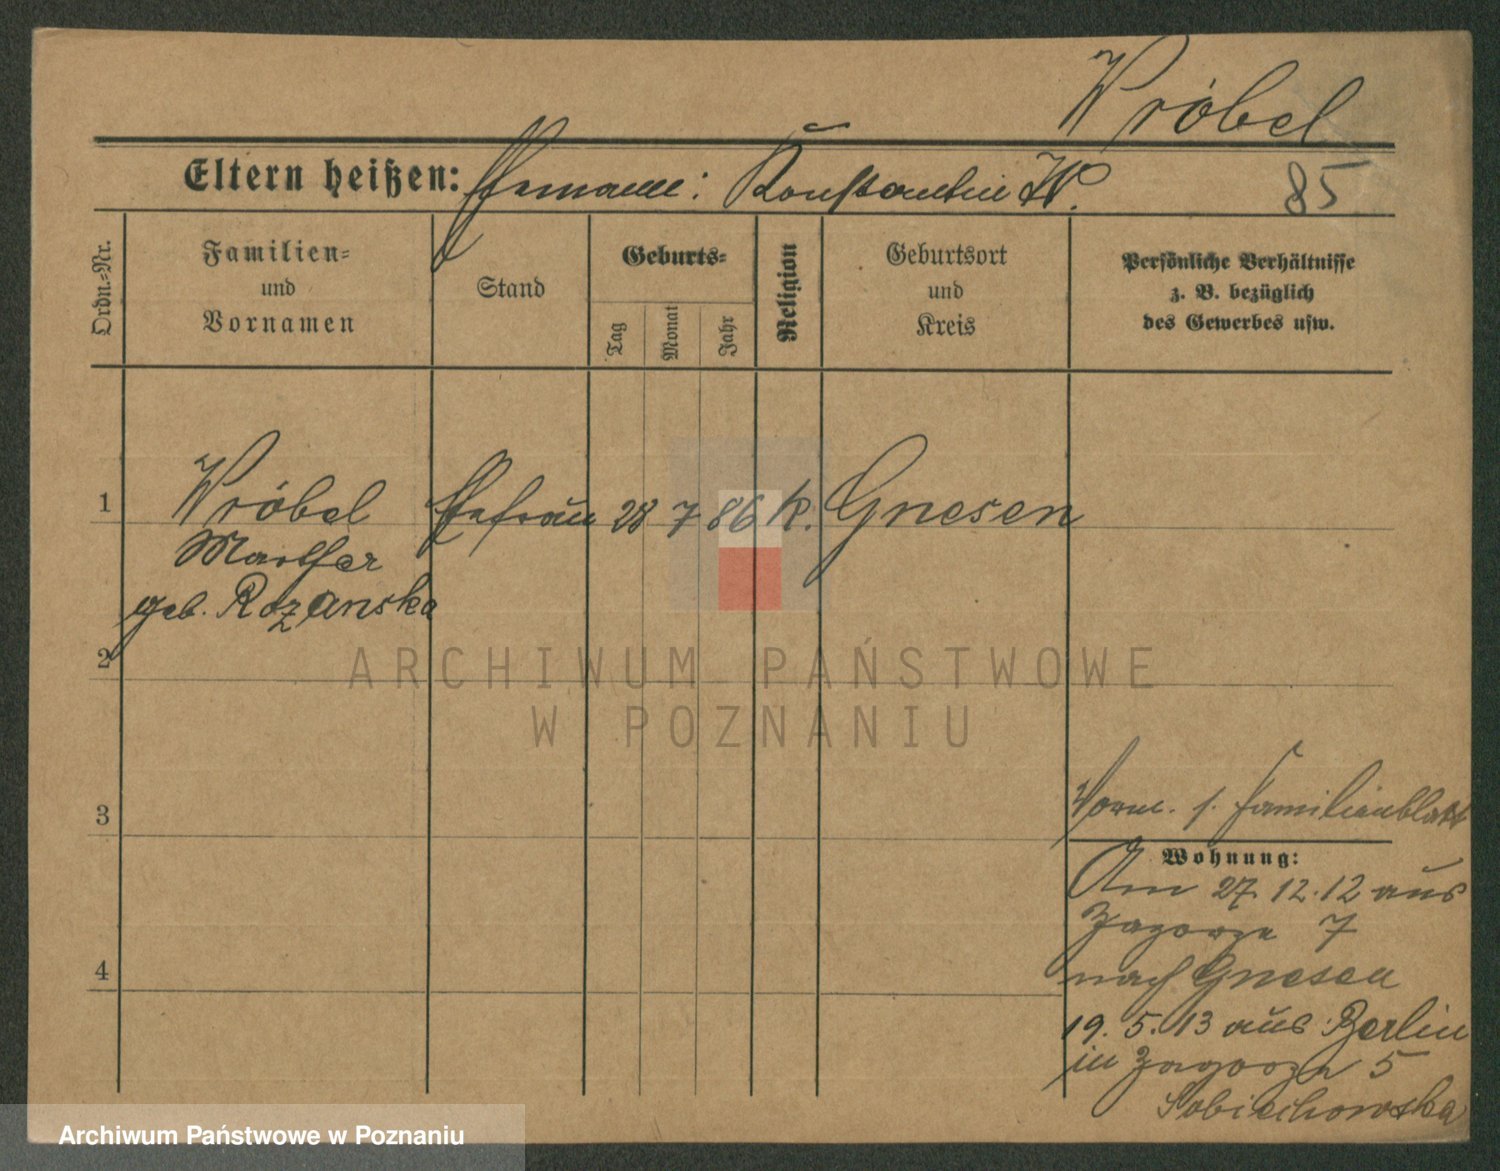 Wróbel
Eltern heißen: Ehemann: Konstantin W.
85
Ordn.-Nr.
Familien-
und
Vornamen
Stand
Geburts-
Tag
Monat
Jahr
Religion
Geburtsort
und
Kreis
Persönliche Verhältnisse
z. B. bezüglich
des Gewerbes usw.
1 Wróbel Ehefrau 28 7 86 k. Gnesen
Marther
geb. Rozanska
2
ARCHIWUM PAŃSTWOWE
W POZNANIU
3
Vorm. s. Familienblatt
Wohnung:
Am 27.12.12 aus
Zagorze 7
nach Gnesen
4
19. 5. 13 aus Berlin
in Zagorze 5
Sobiechowska
Archiwum Państwowe w Poznaniu